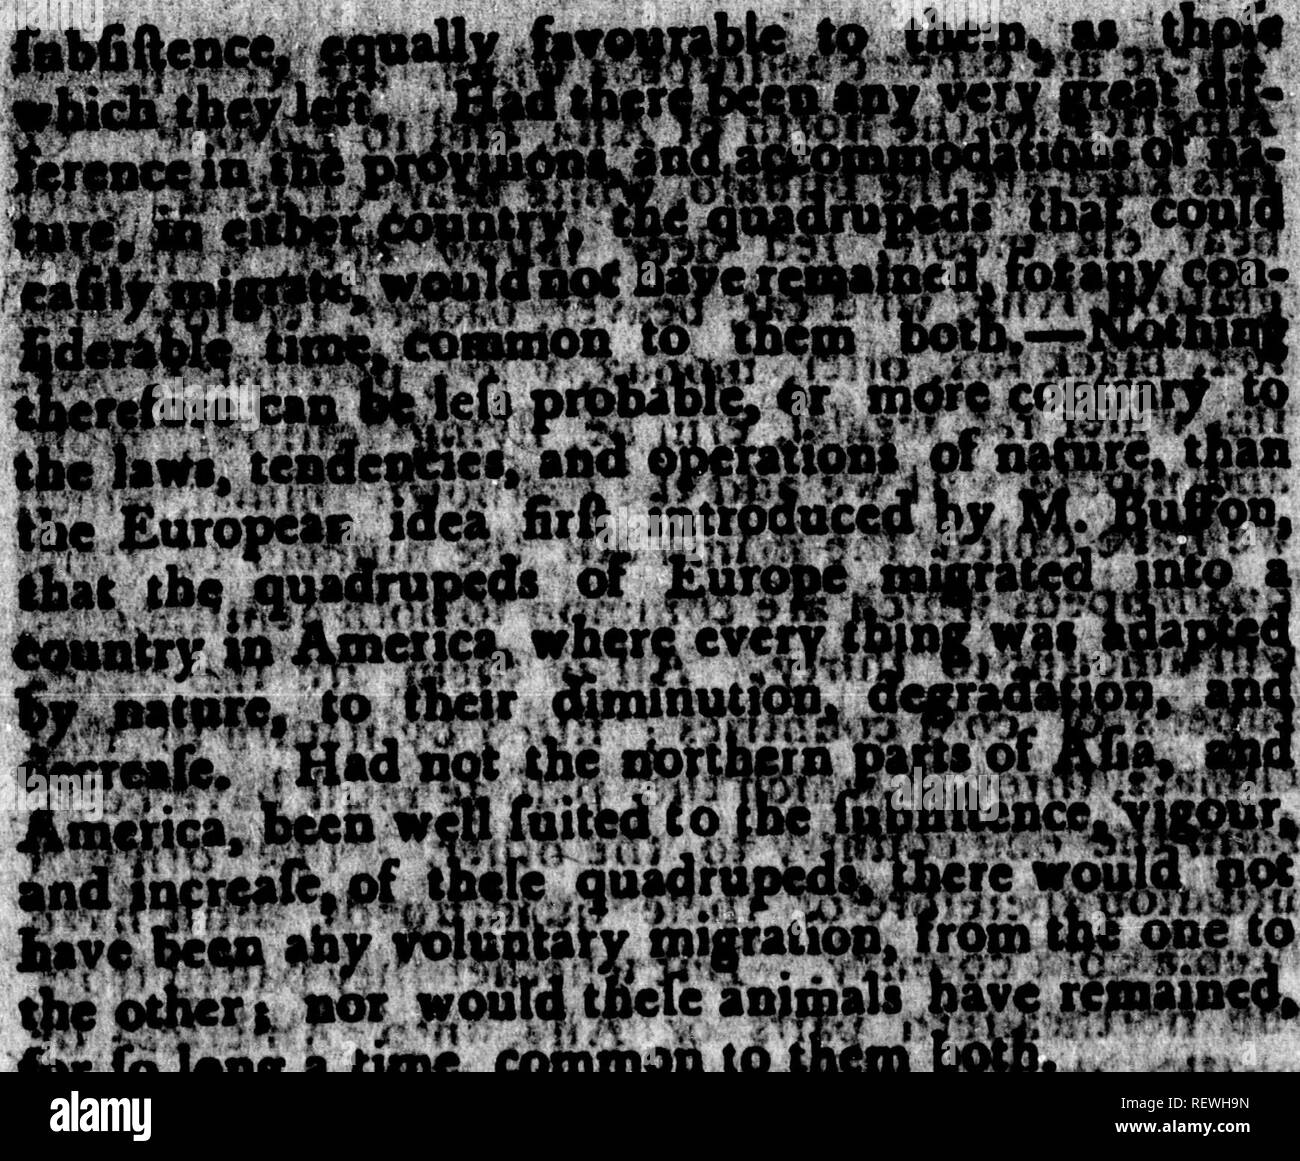 ſubſiſtence, equally favourable to them, as thoſe
which they left. Had there been any very great dif-
ference in the proviſions, and accommodations of na-
ture, in either country, the quadrupeds that could
eaſily migrate, would not have remained, for any con-
ſiderable time, common to them both.—Nothing
therefore can be leſs probable, or more contrary to
the laws, tendencies, and operations of nature, than
the European idea firſt introduced by M. Buffon,
that the quadrupeds of Europe migrated into a
country in America, where every thing was adapted
by nature, to their diminution, degradation, and
decreaſe. Had not the northern parts of Aſia, and
America, been well ſuited to the ſubſiſtence, vigour,
and increaſe, of theſe quadrupeds, there would not
have been any voluntary migration, from the one to
the other; nor would theſe animals have remained,
for ſo long a time, common to them both.
a
alamy
Image ID: REWH9N
www.alamy.com